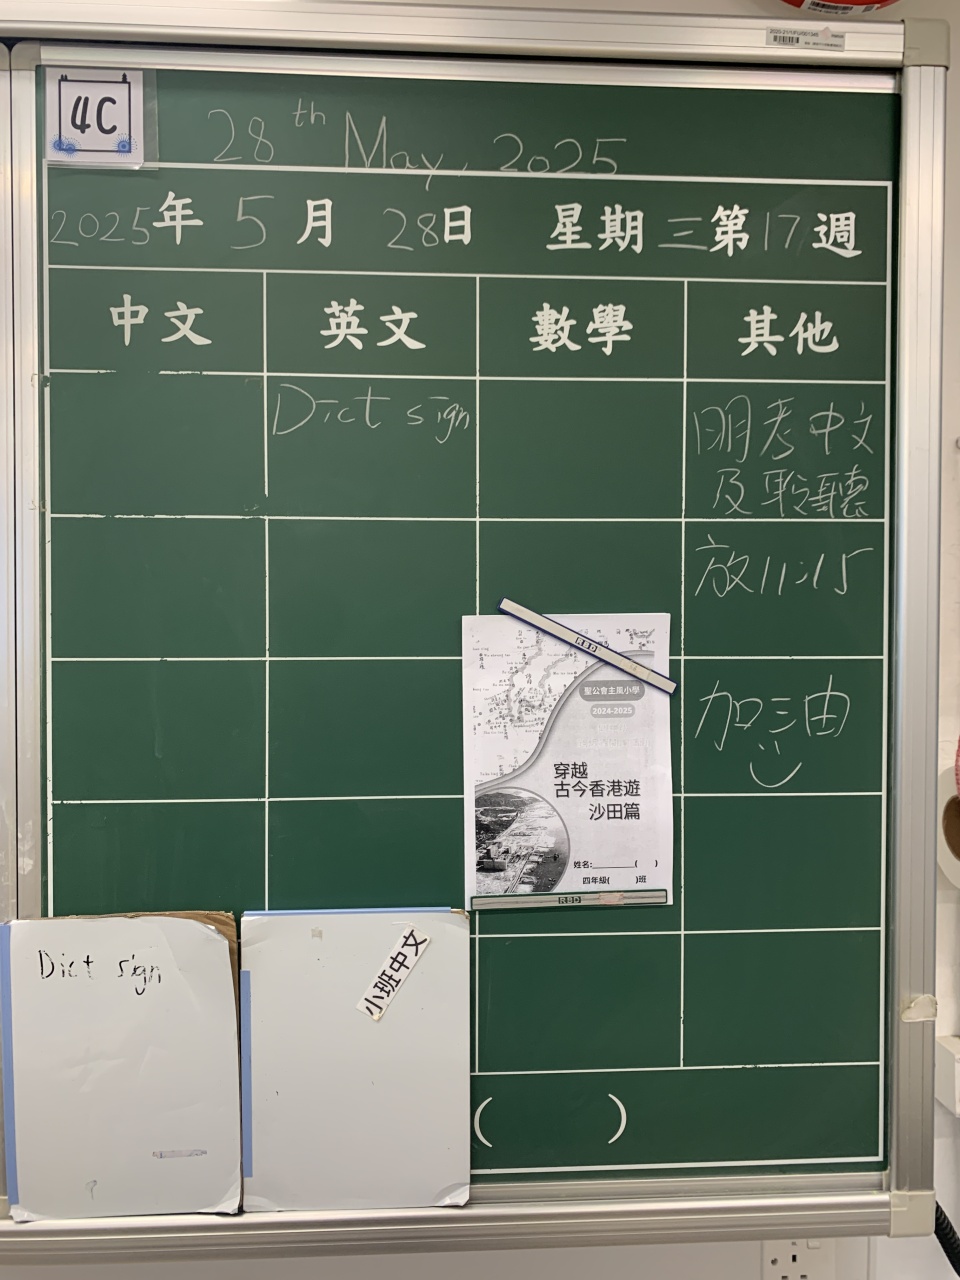 4C
28th May, 2025
2025年 5月 28日 星期三第17週
中文 英文 數學 其他
Dict sign
明考中文
及聆聽
放11:15
加油
RBD
聖公會主風小學
2024-2025
穿越
古今香港遊
沙田篇
姓名:________( )
四年級( )班
RBD
Dict sign
小班中文
( )